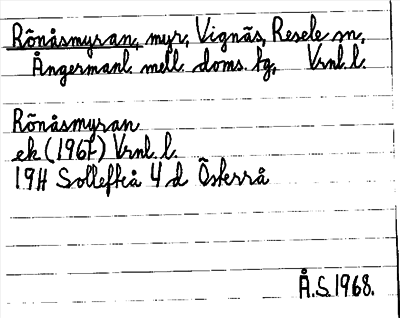 Rõnåsmyran, myr, Vignäs, Resele sn,
Ångermanl. mell. doms. tg, Vrnl. l.
Rõnåsmyran
ek (1967) Vrnl. l.
19H Sollefteå 4 d Õsterrå
Å.S. 1968.